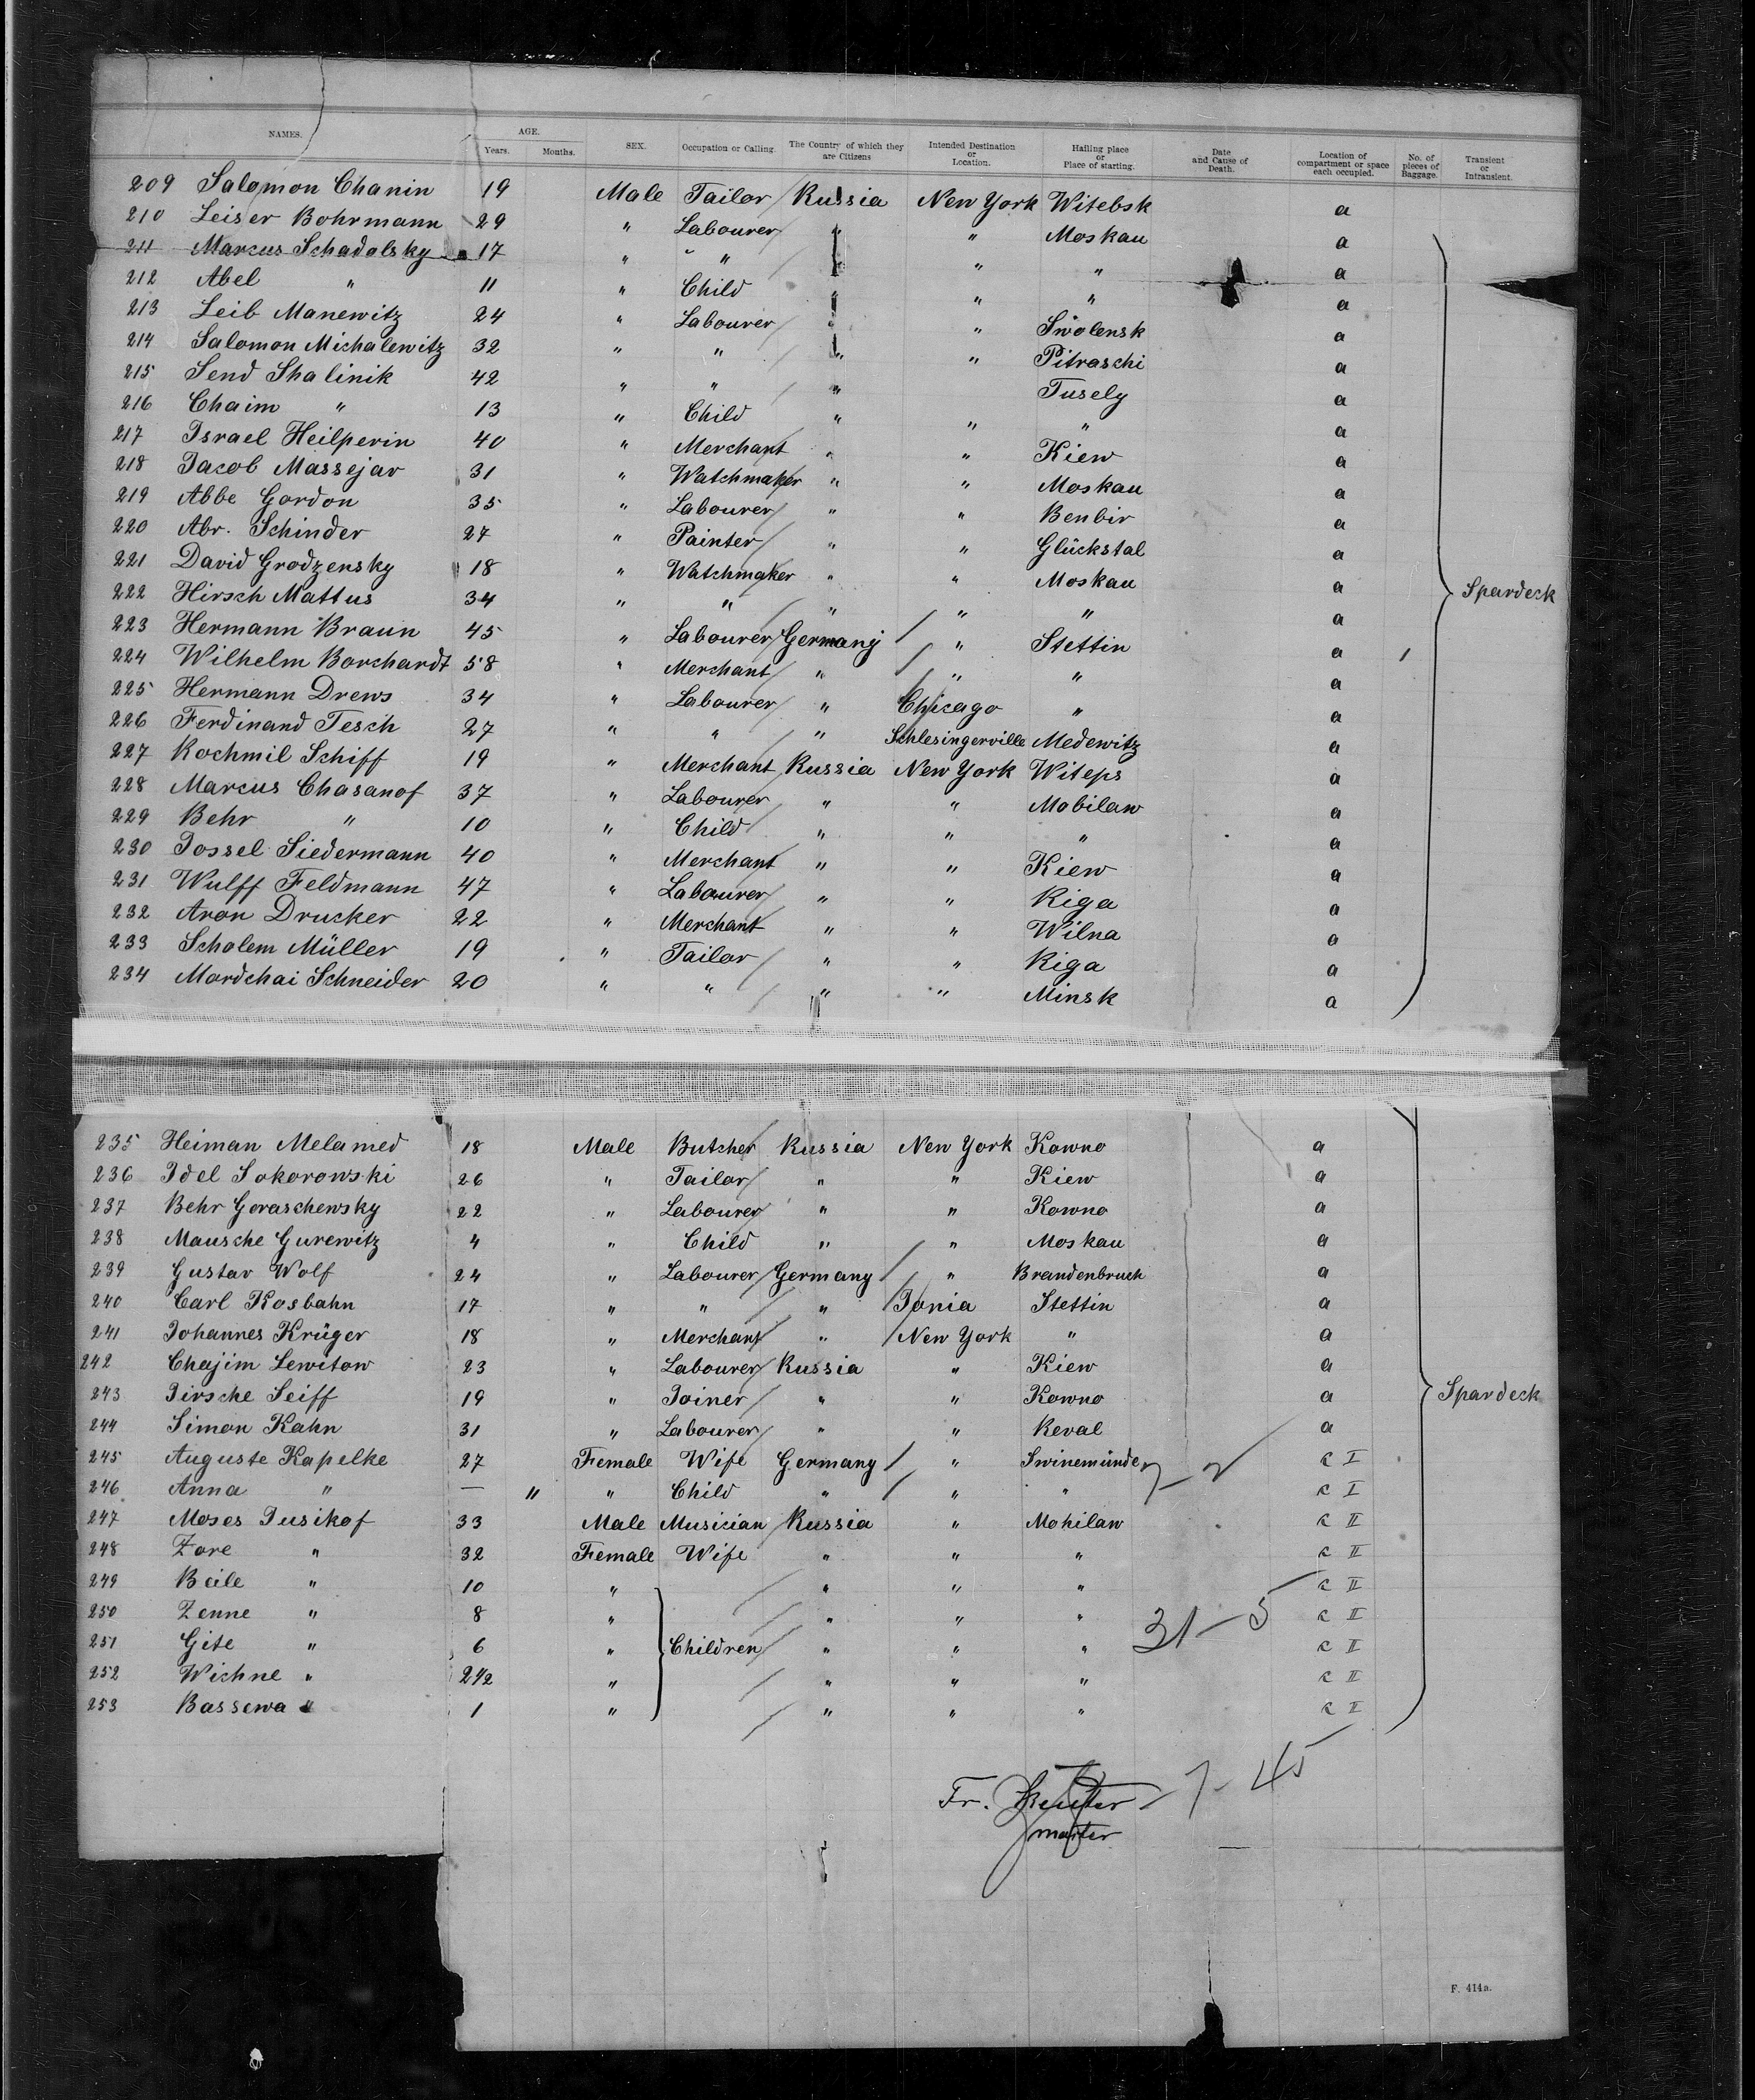 NAMES. AGE. Years. Months. SEX. Occupation or Calling. The Country of which they are Citizens Intended Destination or Location. Hailing place or Place of starting. Date and Cause of Death. Location of compartment or space each occupied. No. of pieces of Baggage. Transient or Intransient.
209 Salomon Chanin 19 Male Tailor Russia New York Witebsk a
210 Leiser Bohrmann 29 " Labourer " " Moskau a
211 Marcus Schadolsky 17 " " " " a
212 Abel " 11 " Child " " " a
213 Leib Manewitz 24 " Labourer " " Smolensk a
214 Salomon Michalewitz 32 " " " " Pitraschi a
215 Send Shalinik 42 " " " Tusely a
216 Chaim " 13 " Child " " " a
217 Israel Heilperin 40 " Merchant " " Kiew a
218 Jacob Massejar 31 " Watchmaker " " Moskau a
219 Abbe Gordon 35 " Labourer " " Benbir a
220 Abr. Schinder 27 " Painter " " Glückstal a
221 David Grodzensky 18 " Watchmaker " " Moskau a
222 Hirsch Mattus 34 " " " " " a Spardeck
223 Hermann Braun 45 " Labourer Germany " Stettin a 1
224 Wilhelm Borchardt 58 " Merchant " " " a
225 Hermann Drews 34 " Labourer " Chicago " a
226 Ferdinand Tesch 27 " " " Schlesingerville Medewitz a
227 Rochmil Schiff 19 " Merchant Russia New York Witeps a
228 Marcus Chasanof 37 " Labourer " " Mobilaw a
229 Behr " 10 " Child " " " a
230 Jossel Siedermann 40 " Merchant " " Kiew a
231 Wulff Feldmann 47 " Labourer " " Riga a
232 Aron Drucker 22 " Merchant " " Wilna a
233 Scholem Müller 19 " Tailor " " Riga a
234 Mordchai Schneider 20 " " " " Minsk a
235 Heiman Melamed 18 Male Butcher Russia New York Kowno a
236 Idel Sokorowski 26 " Tailor " " Kiew a
237 Behr Goraschewsky 22 " Labourer " " Kowno a
238 Mausche Gurewitz 4 " Child " " Moskau a
239 Gustav Wolf 24 " Labourer Germany " Brandenbruch a
240 Carl Kosbahn 17 " " " Jonia Stettin a
241 Johannes Krüger 18 " Merchant " New York " a
242 Chajim Lewitow 23 " Labourer Russia " Kiew a
243 Jirsche Seiff 19 " Joiner " " Kowno a Spardeck
244 Simon Kahn 31 " Labourer " " Reval a
245 Auguste Kapelke 27 Female Wife Germany " Swinemünde c I
246 Anna " — " " Child " " " c I
247 Moses Jusikof 33 Male Musician Russia " Mohilaw c II
248 Zore " 32 Female Wife " " " c II
249 Beile " 10 " " " " c II
250 Zenne " 8 " " " " 31-5 c II
251 Gite " 6 " Children " " " c II
252 Wichne " 2 1/2 " " " " c II
253 Bassewa " 1 " " " " c II
Fr.
master
F. 414a.